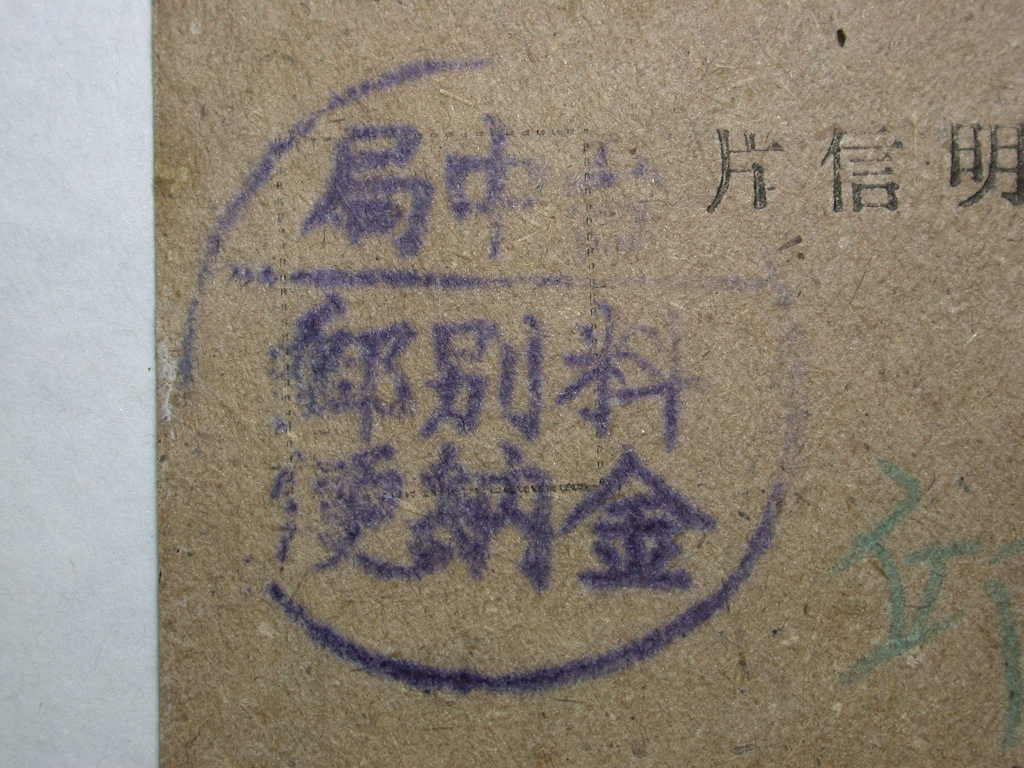 明信片
中局
料金
別納
郵便